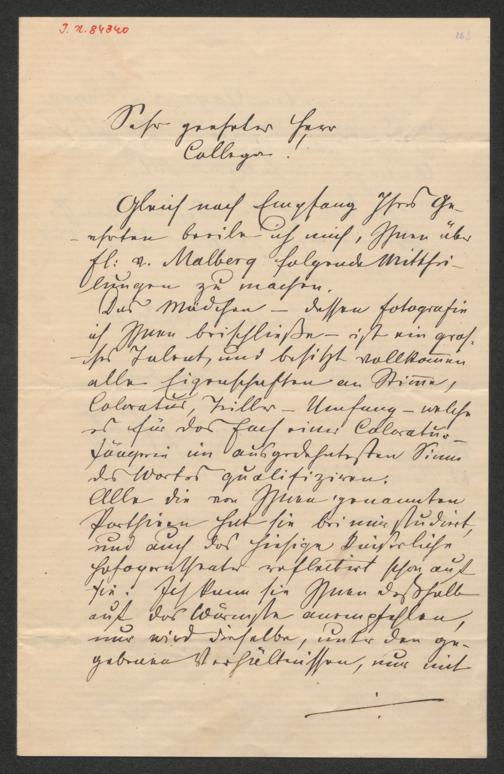 J. N. 84340
Sehr geehrter Herr
College!
Gleich nach Empfang Ihres Ge-
-ehrten beeile ich mich, Ihnen über
Frl: v. Malberg folgende Mitthei-
lungen zu machen.
Das Mädchen – dessen Fotografie
ich Ihnen beischließe – ist ein gros-
-ses Talent, und besitzt vollkommen
alle Eigenschaften an Stimme,
Coloratur, Triller – Umfang – welche
es für das Fach einer Coloratur-
sängerin im ausgedehntesten Sinne
des Wortes qualifiziren.
Alle die von Ihnen genannten
Parthieen hat sie bei mir studiert,
und auch das hiesige kaiserliche
Hofoperntheater reflectirt schon auf
sie. Ich kann sie Ihnen deßhalb
auf das Wärmste anempfehlen,
nur wird dieselbe, unter den ge-
gebenen Verhältnissen, nur mit